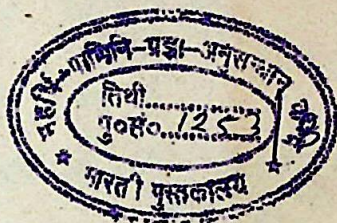 महर्षि पाणिनि-प्रज्ञा-अनुसन्धान
तिथी..............
पु०सं०. 1253
* भारती पुस्तकालय *